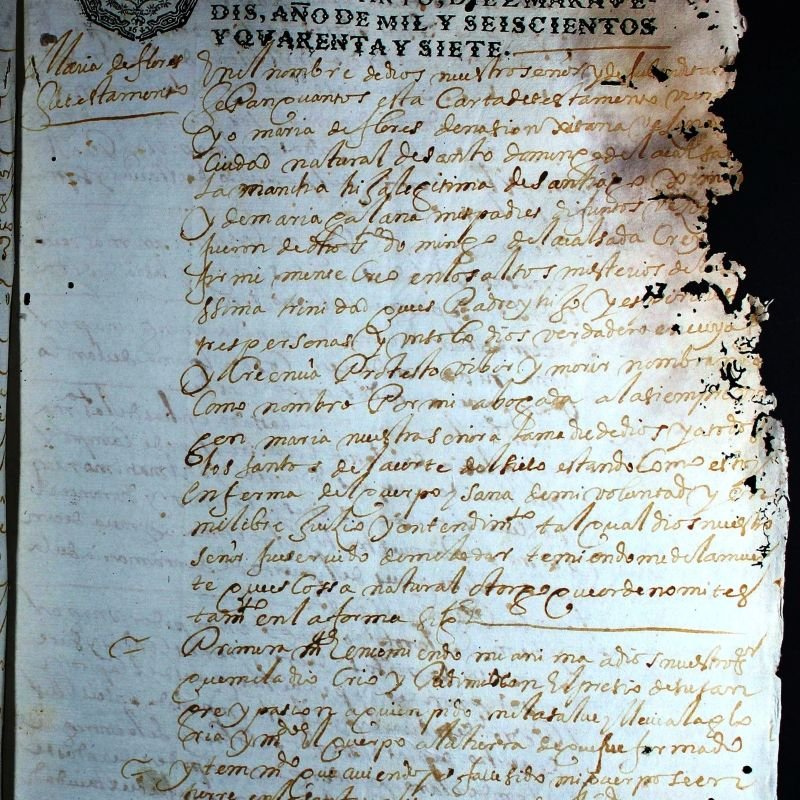 DIS, AÑO DE MIL Y SEISCIENTOS
Y QVARENTA Y SIETE.
Maria de flores
testamento
En el nombre de dios nuestro señor y de
Sepan quantos esta Carta de testamento
Yo maria de flores de nasion xitana
Ciudad natural de santo domingo de la calsa
la mancha hija legitima de santiago
y de maria galana mis padres difuntos
fueron de dho sto domingo de la calsada Cre
firmi mente Creo en los altos misterios de la
ssima trinidad ques Padre y hijo y espiritu
tres personas y un solo dios verdadero en cuya
y creencia Protesto vibir y morir nombra
Como nombro Por mi abogada a la siempre
gen maria nuestra señora la madre de dios y a todos
los santos de la corte del sielo estando Como estoy
enferma del cuerpo y sana de mi voluntad y en
mi libre Juisio y entendimto tal qual dios nuestro
señor fue servido de me dar temiendome de la muer
te ques Cossa natural otorgo que ordeno mi tes
tamto en la forma sigte
Primera mte Encomiendo mi anima a dios nuestro sr
que me la dio Crio y Redimio con El presio de su san
gre y pasion a quien pido me la salve y lleve a la glo
ria y mdo El cuerpo a la tierra de que fue formado
y tem mdo que aviendo yo fallesido mi cuerpo se en